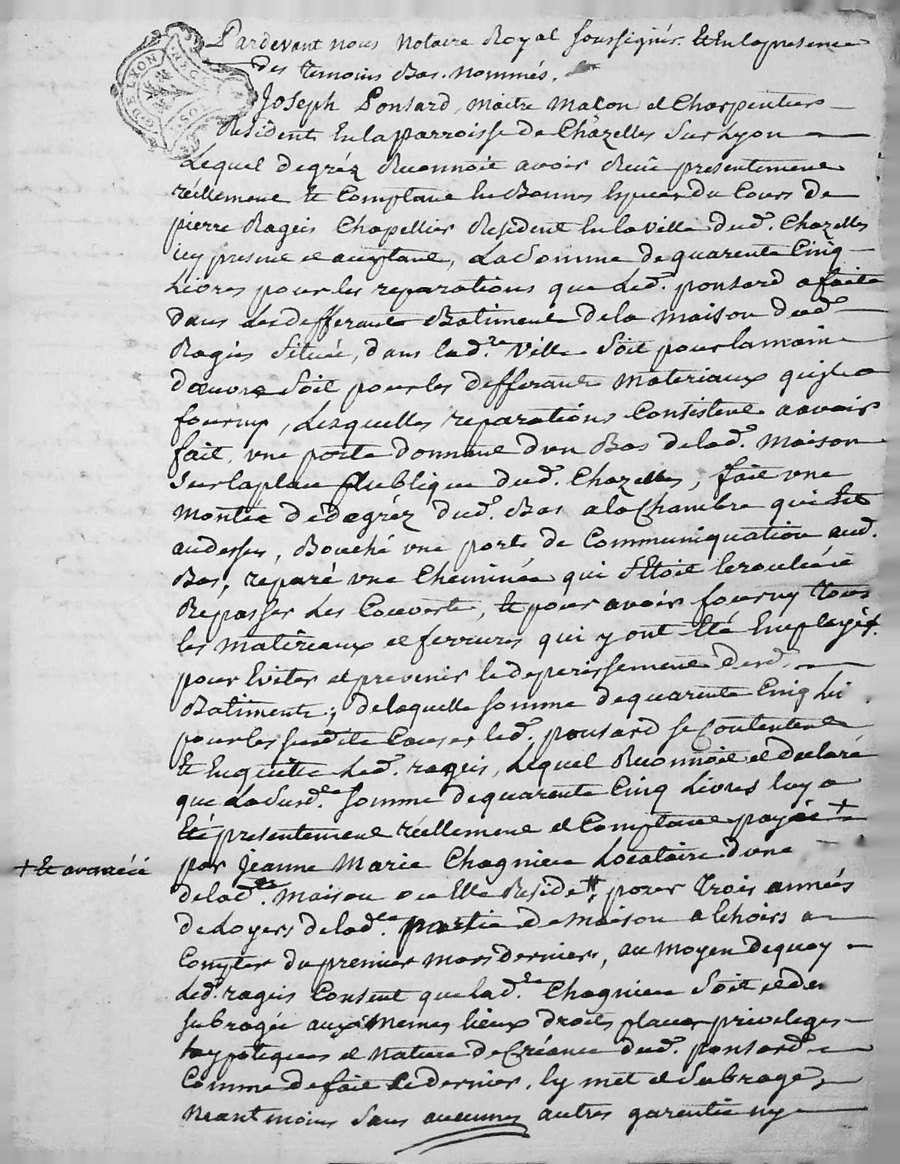 DE LYON
Pardevant nous Notaire Royal soussignés. Et En la presence
des temoins Bas-nommés.
Joseph Ponsard, maitre Maçon et Charpentier
Resident En la parroisse de Chazelles Sur Lyon
Lequel de gréz Reconnoit avoir Reçû presentement
réellement Et Comptant En Bonnes Especes du Cours de
pierre Rageis Chapellier Resident En la Ville dud. Chazelles
icy present et acceptant, La Somme de quarente Cinq
Livres pour les reparations que Led. ponsard a faite
dans Les defferants Batiments de la maison dud.
Rageis Située, dans lad.te Ville Soit pour la main
d'œuvre Soit pour les defferants materiaux qu'il a
fourny, Lesquelles reparations Consistent a avoir
fait, une porte donnant d'un Bas de lad. maison
Sur la place Publique dud. Chazelles, fait une
montée de degréz dud. Bas a la Chambre qui Est
au desses, Bouché une porte de Communiquation aud.
Bas, reparé une Cheminée qui s'Etoit Ecroulée
Repasser Les Couverts, Et pour avoir fourny Tous
les materiaux et ferrures qui y ont Eté Employés.
pour Eviter et prevenir le deperissement desd.
Batiments; de laquelle somme de quarente Cinq Li
pour les susdite Causes led. ponsard se Contentent
Et En quitte Led. rageis, Lequel Reconnoit et declare
que La Susd.te somme de quarente Cinq Livres luy a
Eté presentement réellement et Comptant payée +
+ Et avancée
par Jeanne Marie Chagnieu Locataire d'une
de lad.te maison ou Elle Reside, pour Trois années
de Loyers de lad.te partie de maison a Echoirs a
Compter du premier mars dernier, au moyen de quoy
Led. rageis Consent que lad.te Chagnieu Soit
subrogée aux memes lieux droits places privileges
hypoteques et nature de Créance dud. ponsard
Comme de fait Ce dernier, l'y met et Subroge,
neant moins Sans aucunes autres garentie ny